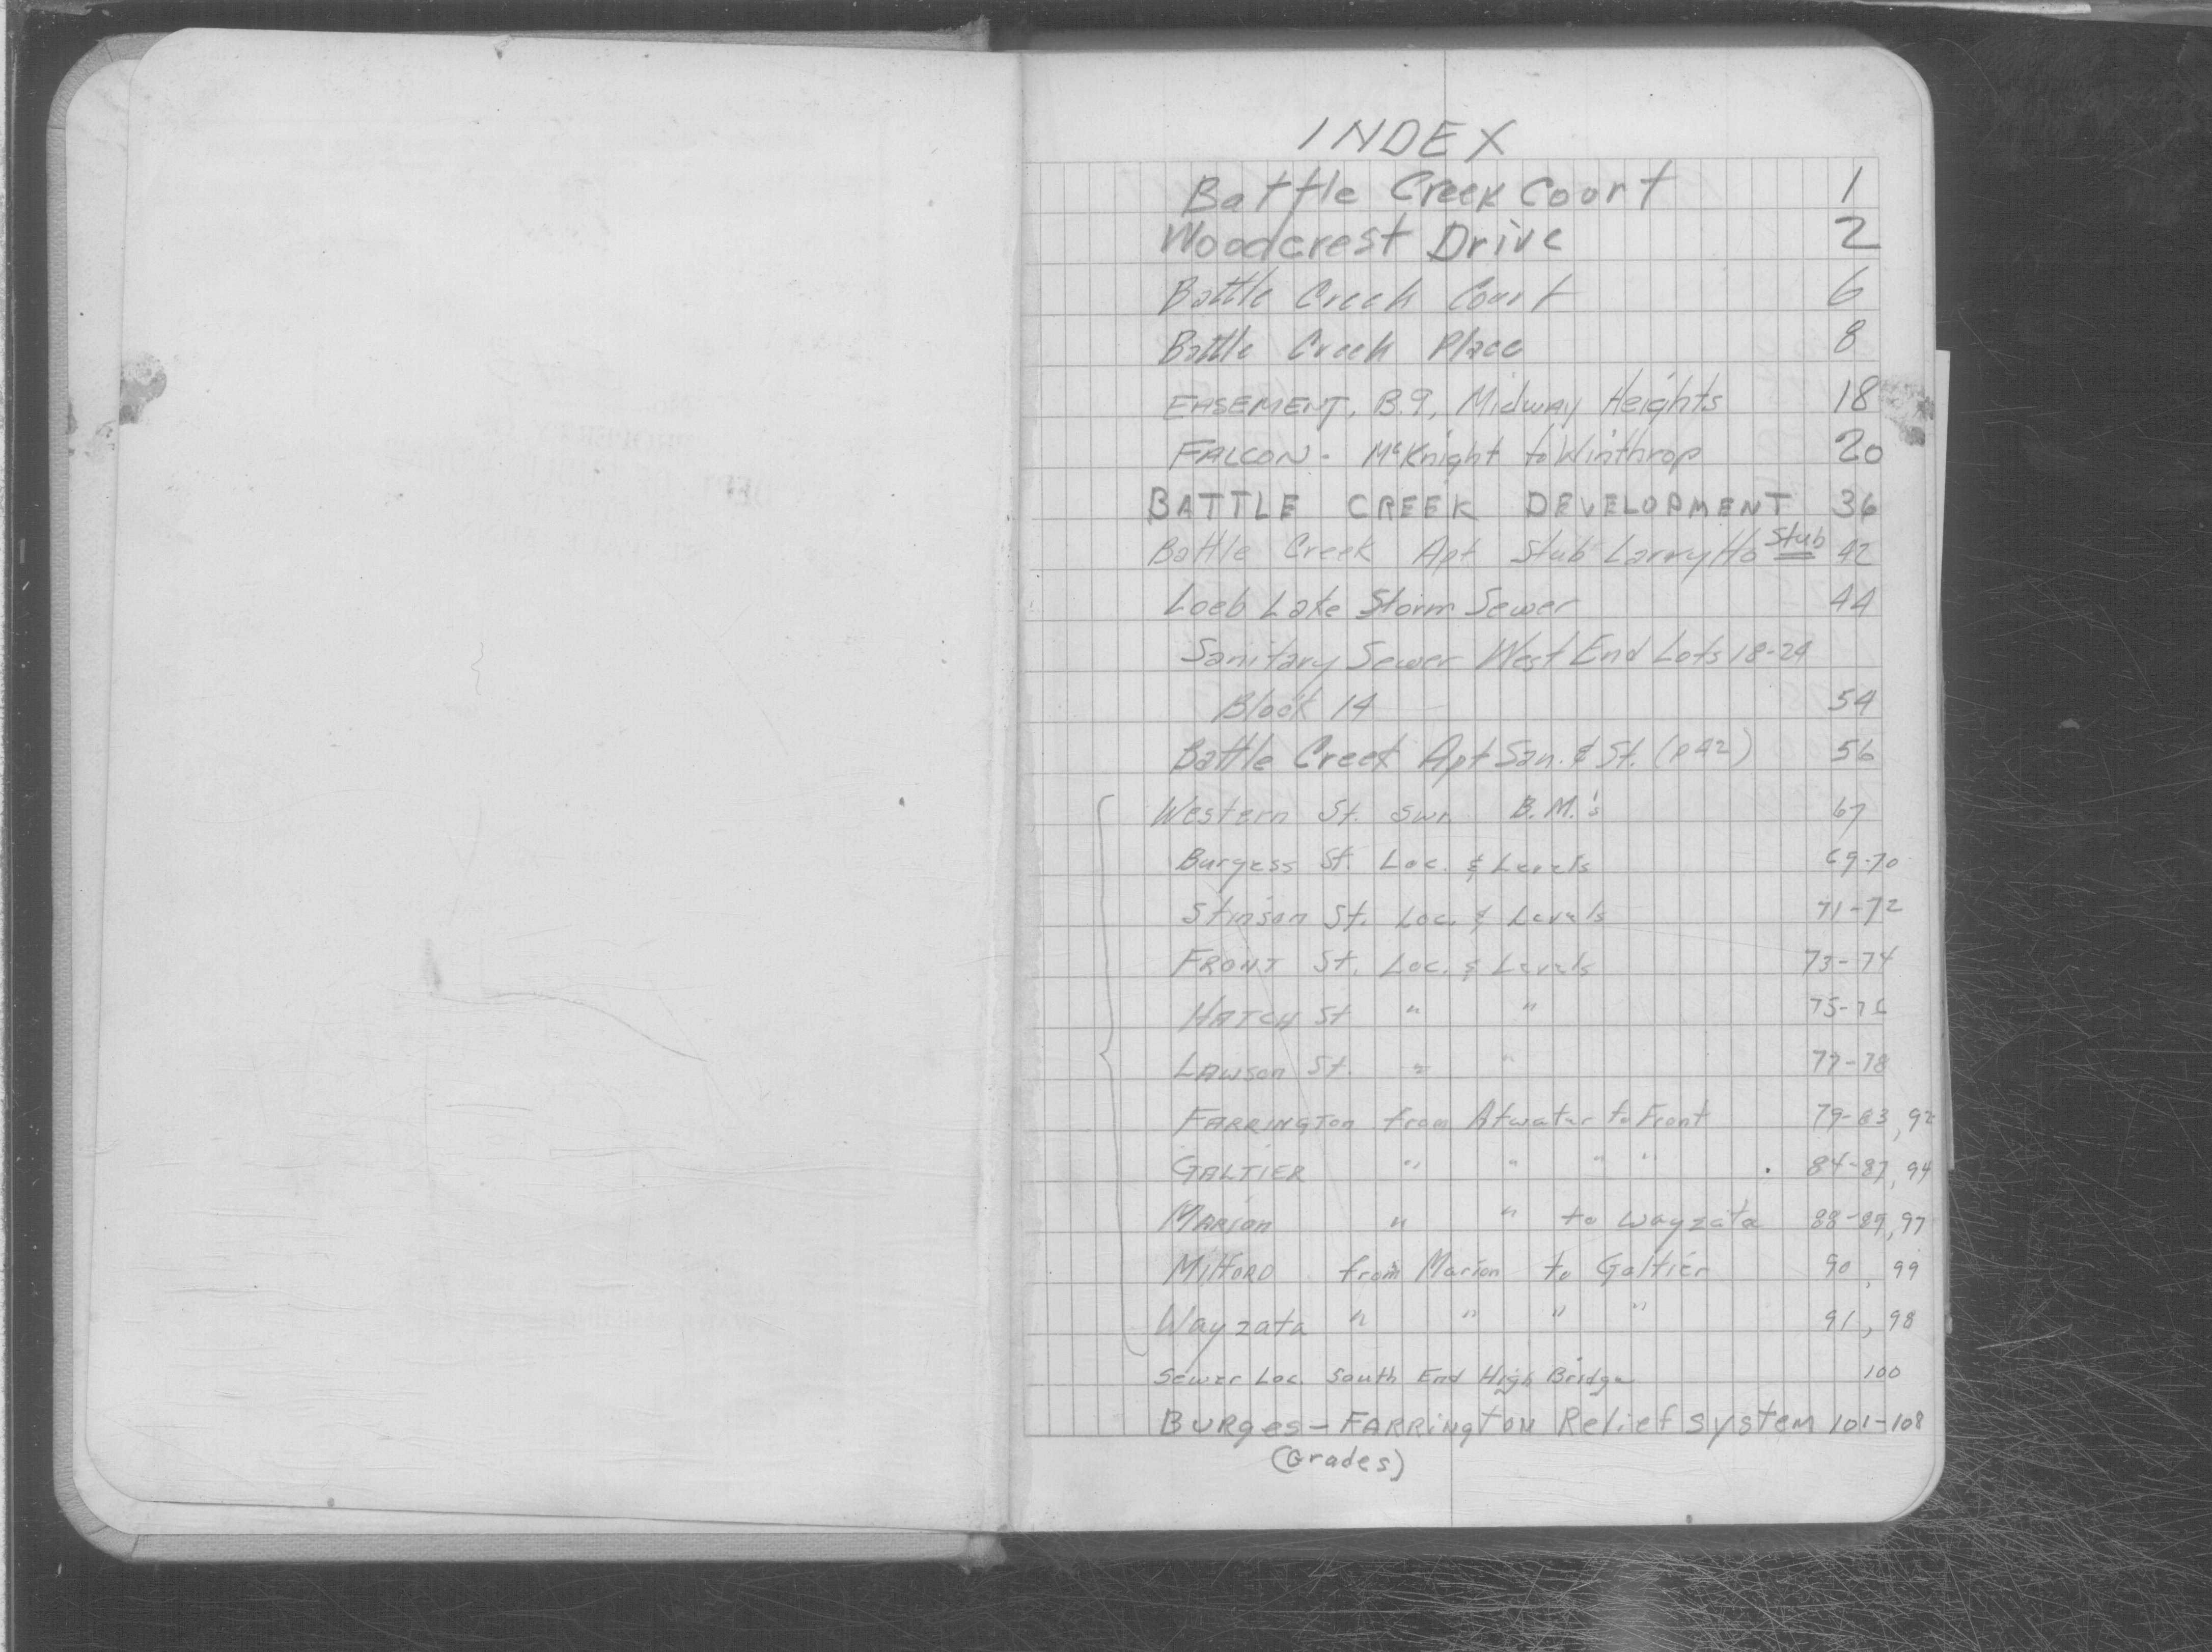 INDEX
Battle Creek Court 1
Woodcrest Drive 2
Battle Creek Court 6
Battle Creek Place 8
EASEMENT, B.9, Midway Heights 18
FALCON - McKnight to Winthrop 20
BATTLE CREEK DEVELOPMENT 36
Battle Creek Apt Stub Larry Ho Stub 42
Loeb Lake Storm Sewer 44
Sanitary Sewer West End Lots 18-24
Block 14 54
Battle Creek Apt San. & St. (p42) 56
Western St. Swr. B.M.'s 67
Burgess St. Loc. & Levels 69-70
Stinson St. Loc. & Levels 71-72
FRONT St. Loc. & Levels 73-74
HATCH St " " 75-76
LAWSON St. " " 77-78
FARRINGTON from Atwater to Front 79-83, 92
GALTIER " " " " 84-87, 94
MARION " " to Wayzata 88-89, 97
MILFORD from Marion to Galtier 90, 99
Wayzata " " " " 91, 98
Sewer Loc. South End High Bridge 100
BURges - FARRington Relief system 101-108
(Grades)